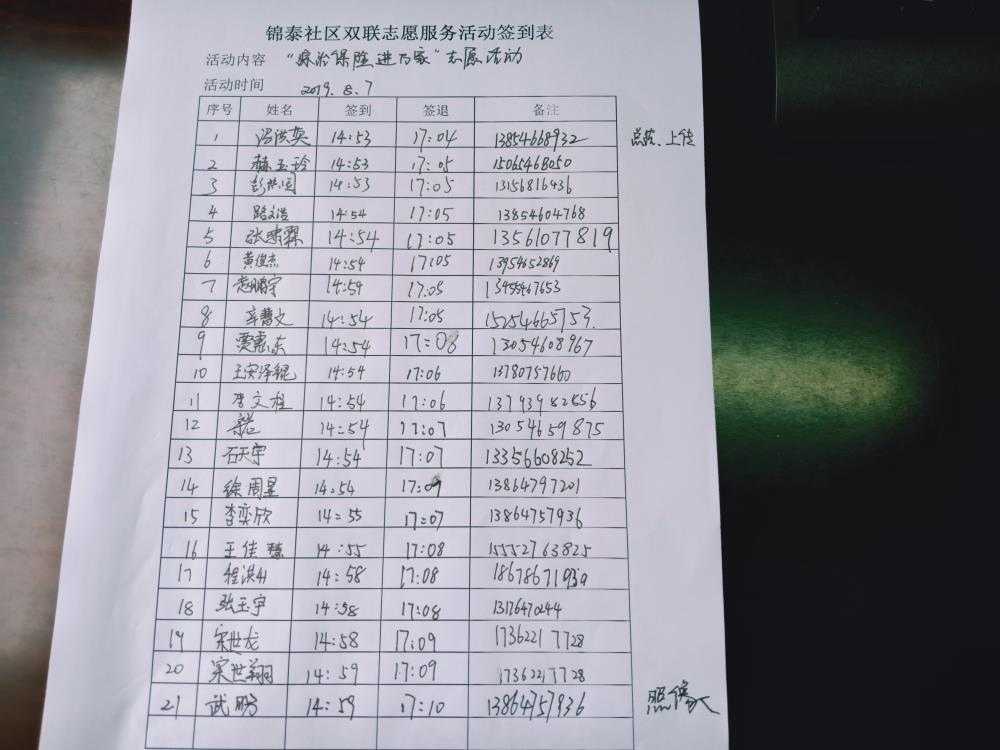 锦泰社区双联志愿服务活动签到表
活动内容 “综治保险进万家”志愿活动
活动时间 2019.8.7
序号 姓名 签到 签退 备注
1 14:53 17:04 13854668932 点名、上传
2 赫玉玲 14:53 17:05 15065468050
3 14:53 17:05 13156816436
4 路文浩 14:54 17:05 13854604768
5 张啸霖 14:54 17:05 13561077819
6 黄俊杰 14:54 17:05 13954652869
7 赵鹏宇 14:54 17:05 13455467653
8 辛慧文 14:54 17:05 15254665753
9 贾惠东 14:54 17:08 13054608967
10 王安泽锟 14:54 17:06 13780757660
11 李文程 14:54 17:06 13793982856
12 14:54 17:07 13054659875
13 石天宇 14:54 17:07 13356608252
14 徐周星 14:54 17:09 13864797201
15 李奕欣 14:55 17:07 13864757936
16 王佳慧 14:55 17:08 15552763825
17 程洪 14:58 17:08 18678671939
18 张玉宇 14:58 17:08 13176470244
19 宋世龙 14:58 17:09 17362217728
20 宋世翔 14:59 17:09 17362217728
21 武鹏 14:59 17:10 13864757936 照像